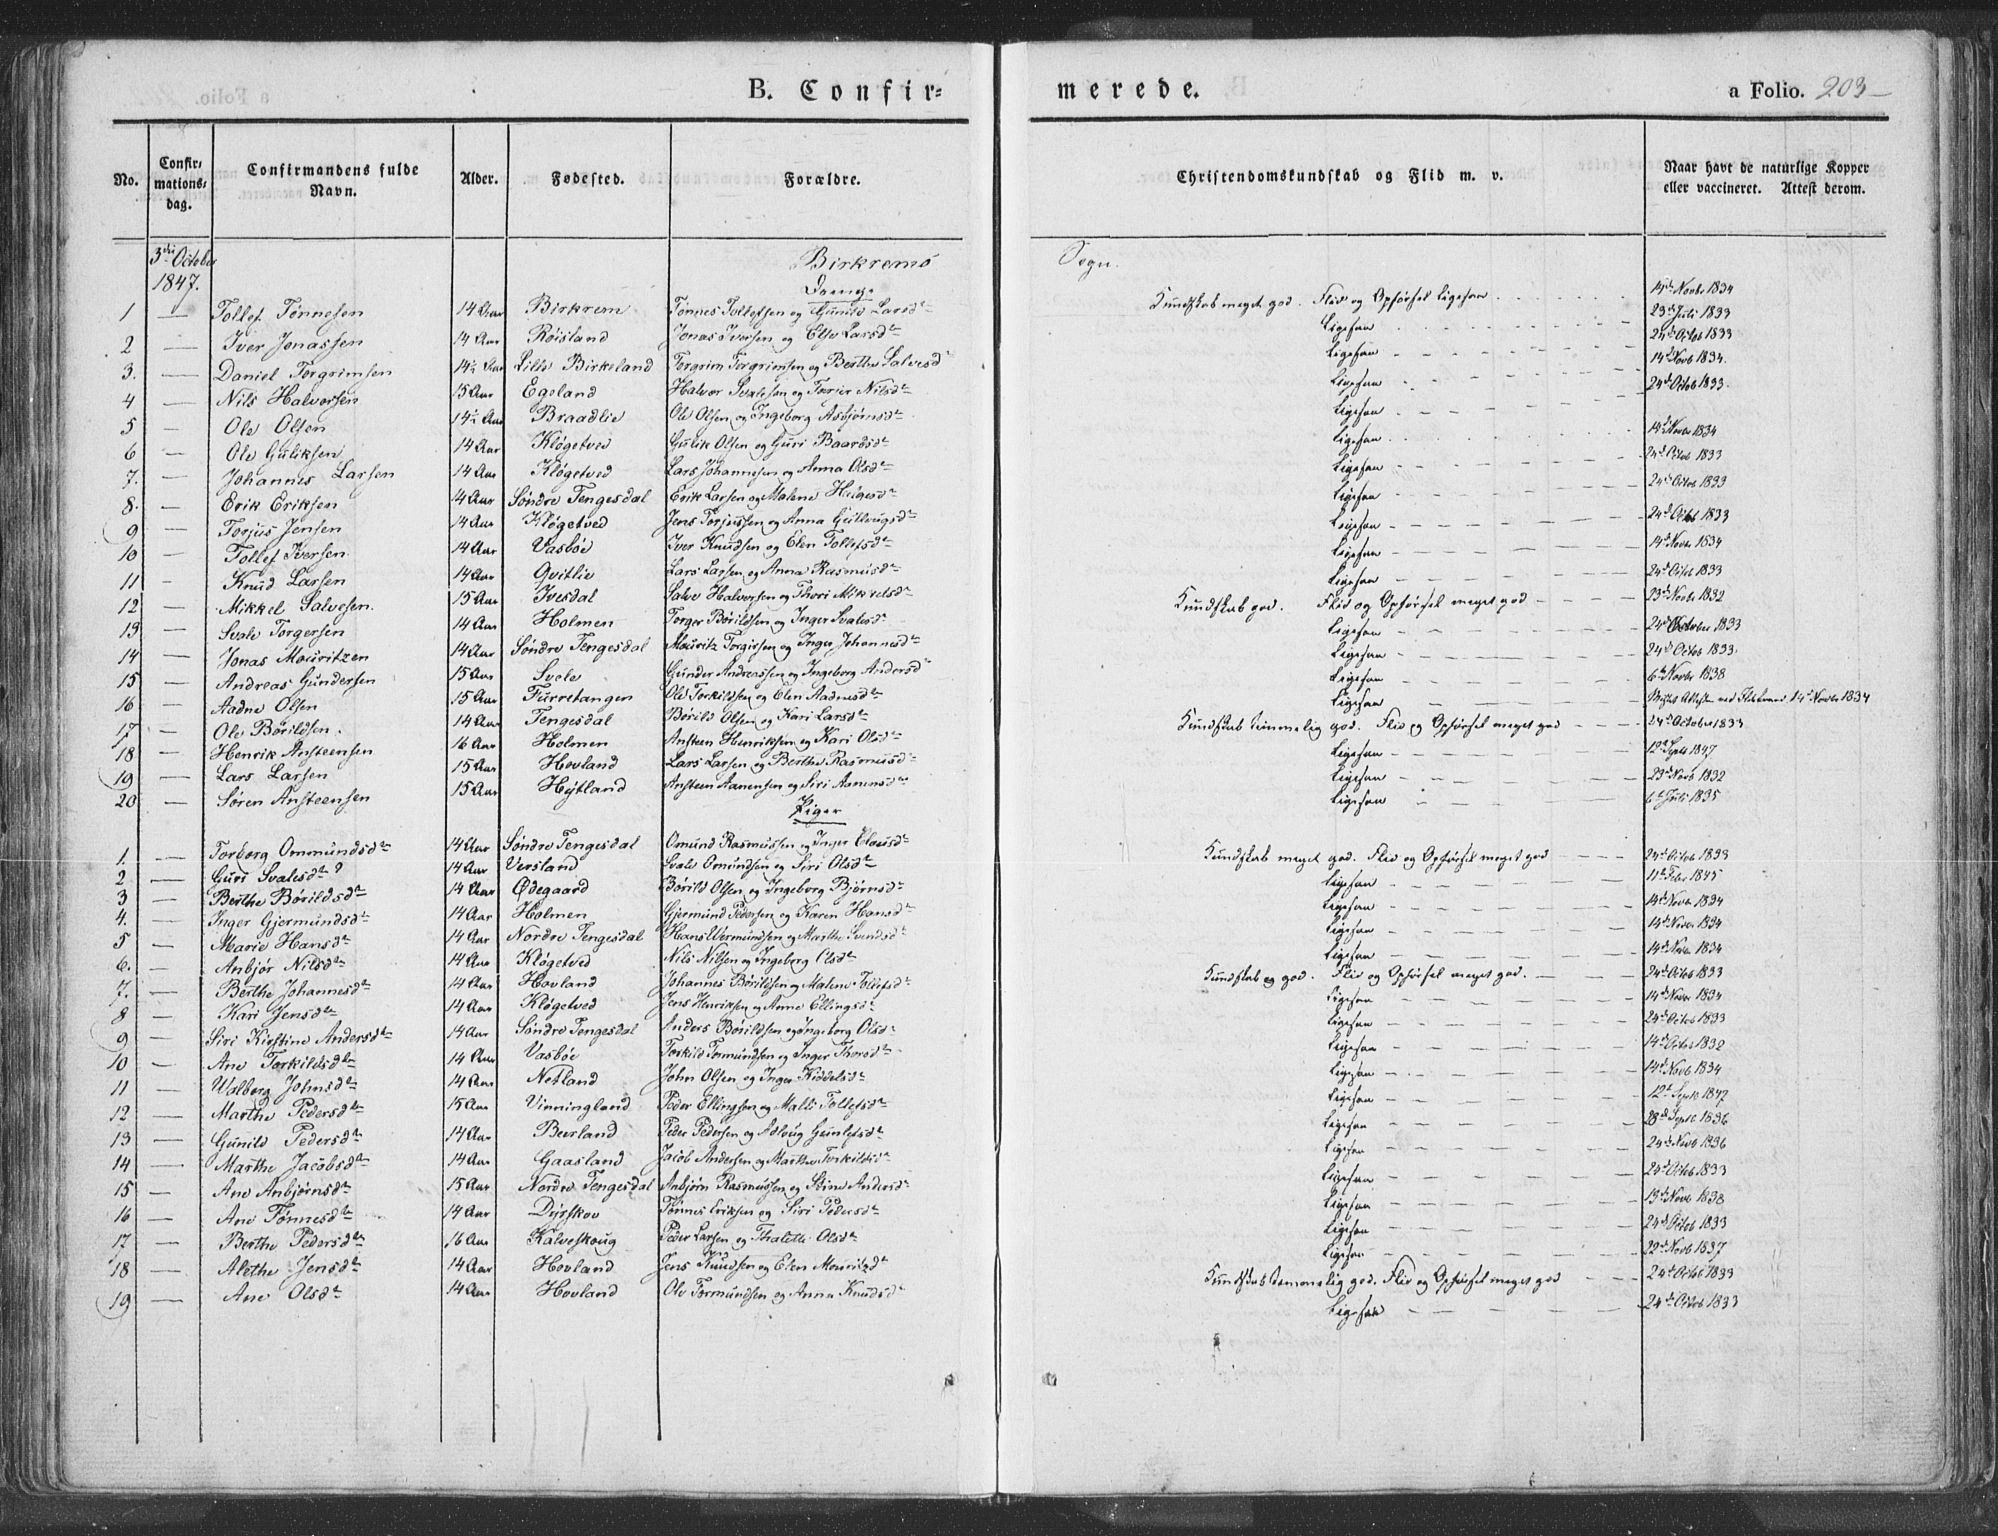 B. Confir=
merede.
a Folio. 203
No. Confir= mations= dag. Confirmandens fulde Navn. Alder. Fødested. Forældre. Christendomskundskab og Flid m. v. Naar havt de naturlige Kopper eller vaccineret. Attest derom.
3die October Birkrems Sogn.
1847. Drenge
1 — Tollef Tønnesen 14 Aar Birkrem Tønnes Tollefsen og Gunild Larsdtr Kundskab meget god. Flid og Opførsel ligesaa 14de Novbr 1834
2 — Iver Jonassen 14 Aar Røisland Jonas Iversen og Else Larsdtr Ligesaa 23de Juli 1833
3. — Daniel Torgrimsen 14½ Aar Lille Birkeland Torgrim Torgrimsen og Berthe Salvesd Ligesaa 24de Octob 1833
4 — Nils Halvorsen 15 Aar Egeland Halvor Svalesen og Torjer Nilsdtr Ligesaa 14de Novb 1834
5 — Ole Olsen 14½ Aar Braadlie Ole Olsen og Ingeborg Asbjørnsdtr Ligesaa 24de Octob 1833.
6 — Ole Guliksen 14 Aar Kløgetved Gulik Olsen og Guri Baardsdtr Ligesaa 14de Novbr 1834
7. — Johannes Larsen 14 Aar Kløgetved Lars Johannesen og Anna Olsdtr Ligesaa 24de Octob 1833
8. — Erik Eriksen 14 Aar Søndre Tengesdal Erik Larsen og Malene Heigesdtr Ligesaa 24de Octob 1833
9 — Torjus Jensen 14 Aar Kløgetved Jens Torjussen og Anna Ligesaa 24de Octob 1833
10 — Tollef Iversen 14 Aar Vasbøe Iver Knudsen og Elen Tollefsdtr Ligesaa 14de Novbr 1834
11 — Knud Larsen 14 Aar Qvitlie Lars Larsen og Anna Rasmusdtr Ligesaa 24de Octob 1833
12 — Mikkel Salvesen. 15 Aar Ivesdal Salve Halvorsen og Thori Mikkelsdtr Kundskab god. Flid og Opførsel meget god 23de Novbr 1832
13 — Svale Torgersen 14 Aar Holmen Torger Børildsen og Inger Svalesdtr Ligesaa 24de October 1833
14 — Jonas Mouritzen 14 Aar Søndre Tengesdal Mouritz Torgersen og Inger Johannesdtr Ligesaa 24de Octob 1833.
15 — Andreas Gundersen 15 Aar Svele Gunder Andreassen og Ingeborg Andersdtr Ligesaa 6te Novbr 1838
16 — Aadne Olsen 15 Aar Furretangen Ole Torkildsen og Elen Aadnesdtr Ligesaa 14de Novbr 1834
17 — Ole Børildsen. 14 Aar Tengesdal Børild Olsen og Kari Larsdtr Kundskab temmelig god. Flid og Opførsel meget god 24de October 1833
18 — Henrik Ansteensen 16 Aar Holmen Ansteen Henriksen og Kari Olsdtr Ligesaa 12te Septb 1847
19 — Lars Larsen 15 Aar Hovland Lars Larsen og Berthe Rasmusdtr Ligesaa 23de Novb 1832
20 — Søren Ansteensen 15 Aar Høitland Ansteen Aanensen og Siri Aanensdtr Ligesaa 6te Juli 1835
Piger
1. — Torborg Ommundsdtr 14 Aar Søndre Tengesdal Omund Rasmussen og Inger Clausdtr Kundskab meget god. Flid og Opførsel meget god 24de Octob 1833
2 — Guri Svalesdtr 14 Aar Versland Svale Omundsen og Siri Olsdtr Ligesaa 11te Febr 1845
3 — Berthe Børildsdtr 14 Aar Ødegaard Børild Olsen og Ingeborg Bjørnsdtr Ligesaa 14de Novbr 1834
4. — Inger Gjermundsdtr 14 Aar Holmen Gjermund Pedersen og Karen Hansdtr Ligesaa 14de Novbr 1834
5 — Marie Hansdtr 14 Aar Nordre Tengesdal Hans Wermundsen og Marthe Svendsdtr Ligesaa 14de Novbr 1834
6. — Anbjør Nilsdtr 14 Aar Kløgetved Nils Nilsen og Ingeborg Olsdtr Kundskab og god. Flid og Opførsel meget god. 24de Octob 1833
7. — Berthe Johannesdtr 14 Aar Hovland Johannes Børildsen og Malene Tollefsdtr Ligesaa 14de Novbr 1834
8 — Kari Jensdtr 14 Aar Kløgetved Jens Henriksen og Anne Ellingsdtr Ligesaa 24de Octob 1833
9 — Siri Kirstine Andersdtr 14 Aar Søndre Tengesdal Anders Børildsen og Ingeborg Olsdtr Ligesaa 14de Octob 1832
10 — Ane Torkildsdtr 14 Aar Vasbøe Torkild Tormundsen og Inger Thorsdtr Ligesaa 14de Novb 1834
11 — Wolberg Johnsdtr 14 Aar Netland John Olsen og Inger Kiddelsdtr Ligesaa 12te Septb 1847
12 — Marthe Pedersdtr 15 Aar Vinningland Peder Ellingsen og Malli Tollefsdtr Ligesaa 28de Septb 1836
13 — Gunild Pedersdtr 14 Aar Beerland Peder Pedersen og Adlaug Gunlefsdtr Ligesaa 24de Novb 1836
14 — Marthe Jacobsdtr 14 Aar Gaasland Jacob Andersen og Marthe Torkildsdtr Ligesaa 24de Octob 1833
15 — Ane Anbjørnsdtr 15 Aar Nordre Tengesdal Anbjørn Rasmussen og Stine Andersdtr Ligesaa 13de Novb 1838
16 — Ane Tønnesdtr 14 Aar Dyrskov Tønnes Eriksen og Siri Pedersdtr Ligesaa 24de Octob 1833
17 — Berthe Pedersdtr 16 Aar Kalveskoug Peder Larsen og Thalette Olsdtr Ligesaa 22de Novb 1837
18 — Alethe Jensdtr 14 Aar Hovland Jens Knudsen og Elen Mouritzdtr Kundskab temmelig god. Flid og Opførsel meget god 24de Octob 1833
19 — Ane Olsdtr 14 Aar Hovland Ole Tormundsen og Anna Knudsdtr Ligesaa 24de Octob 1833